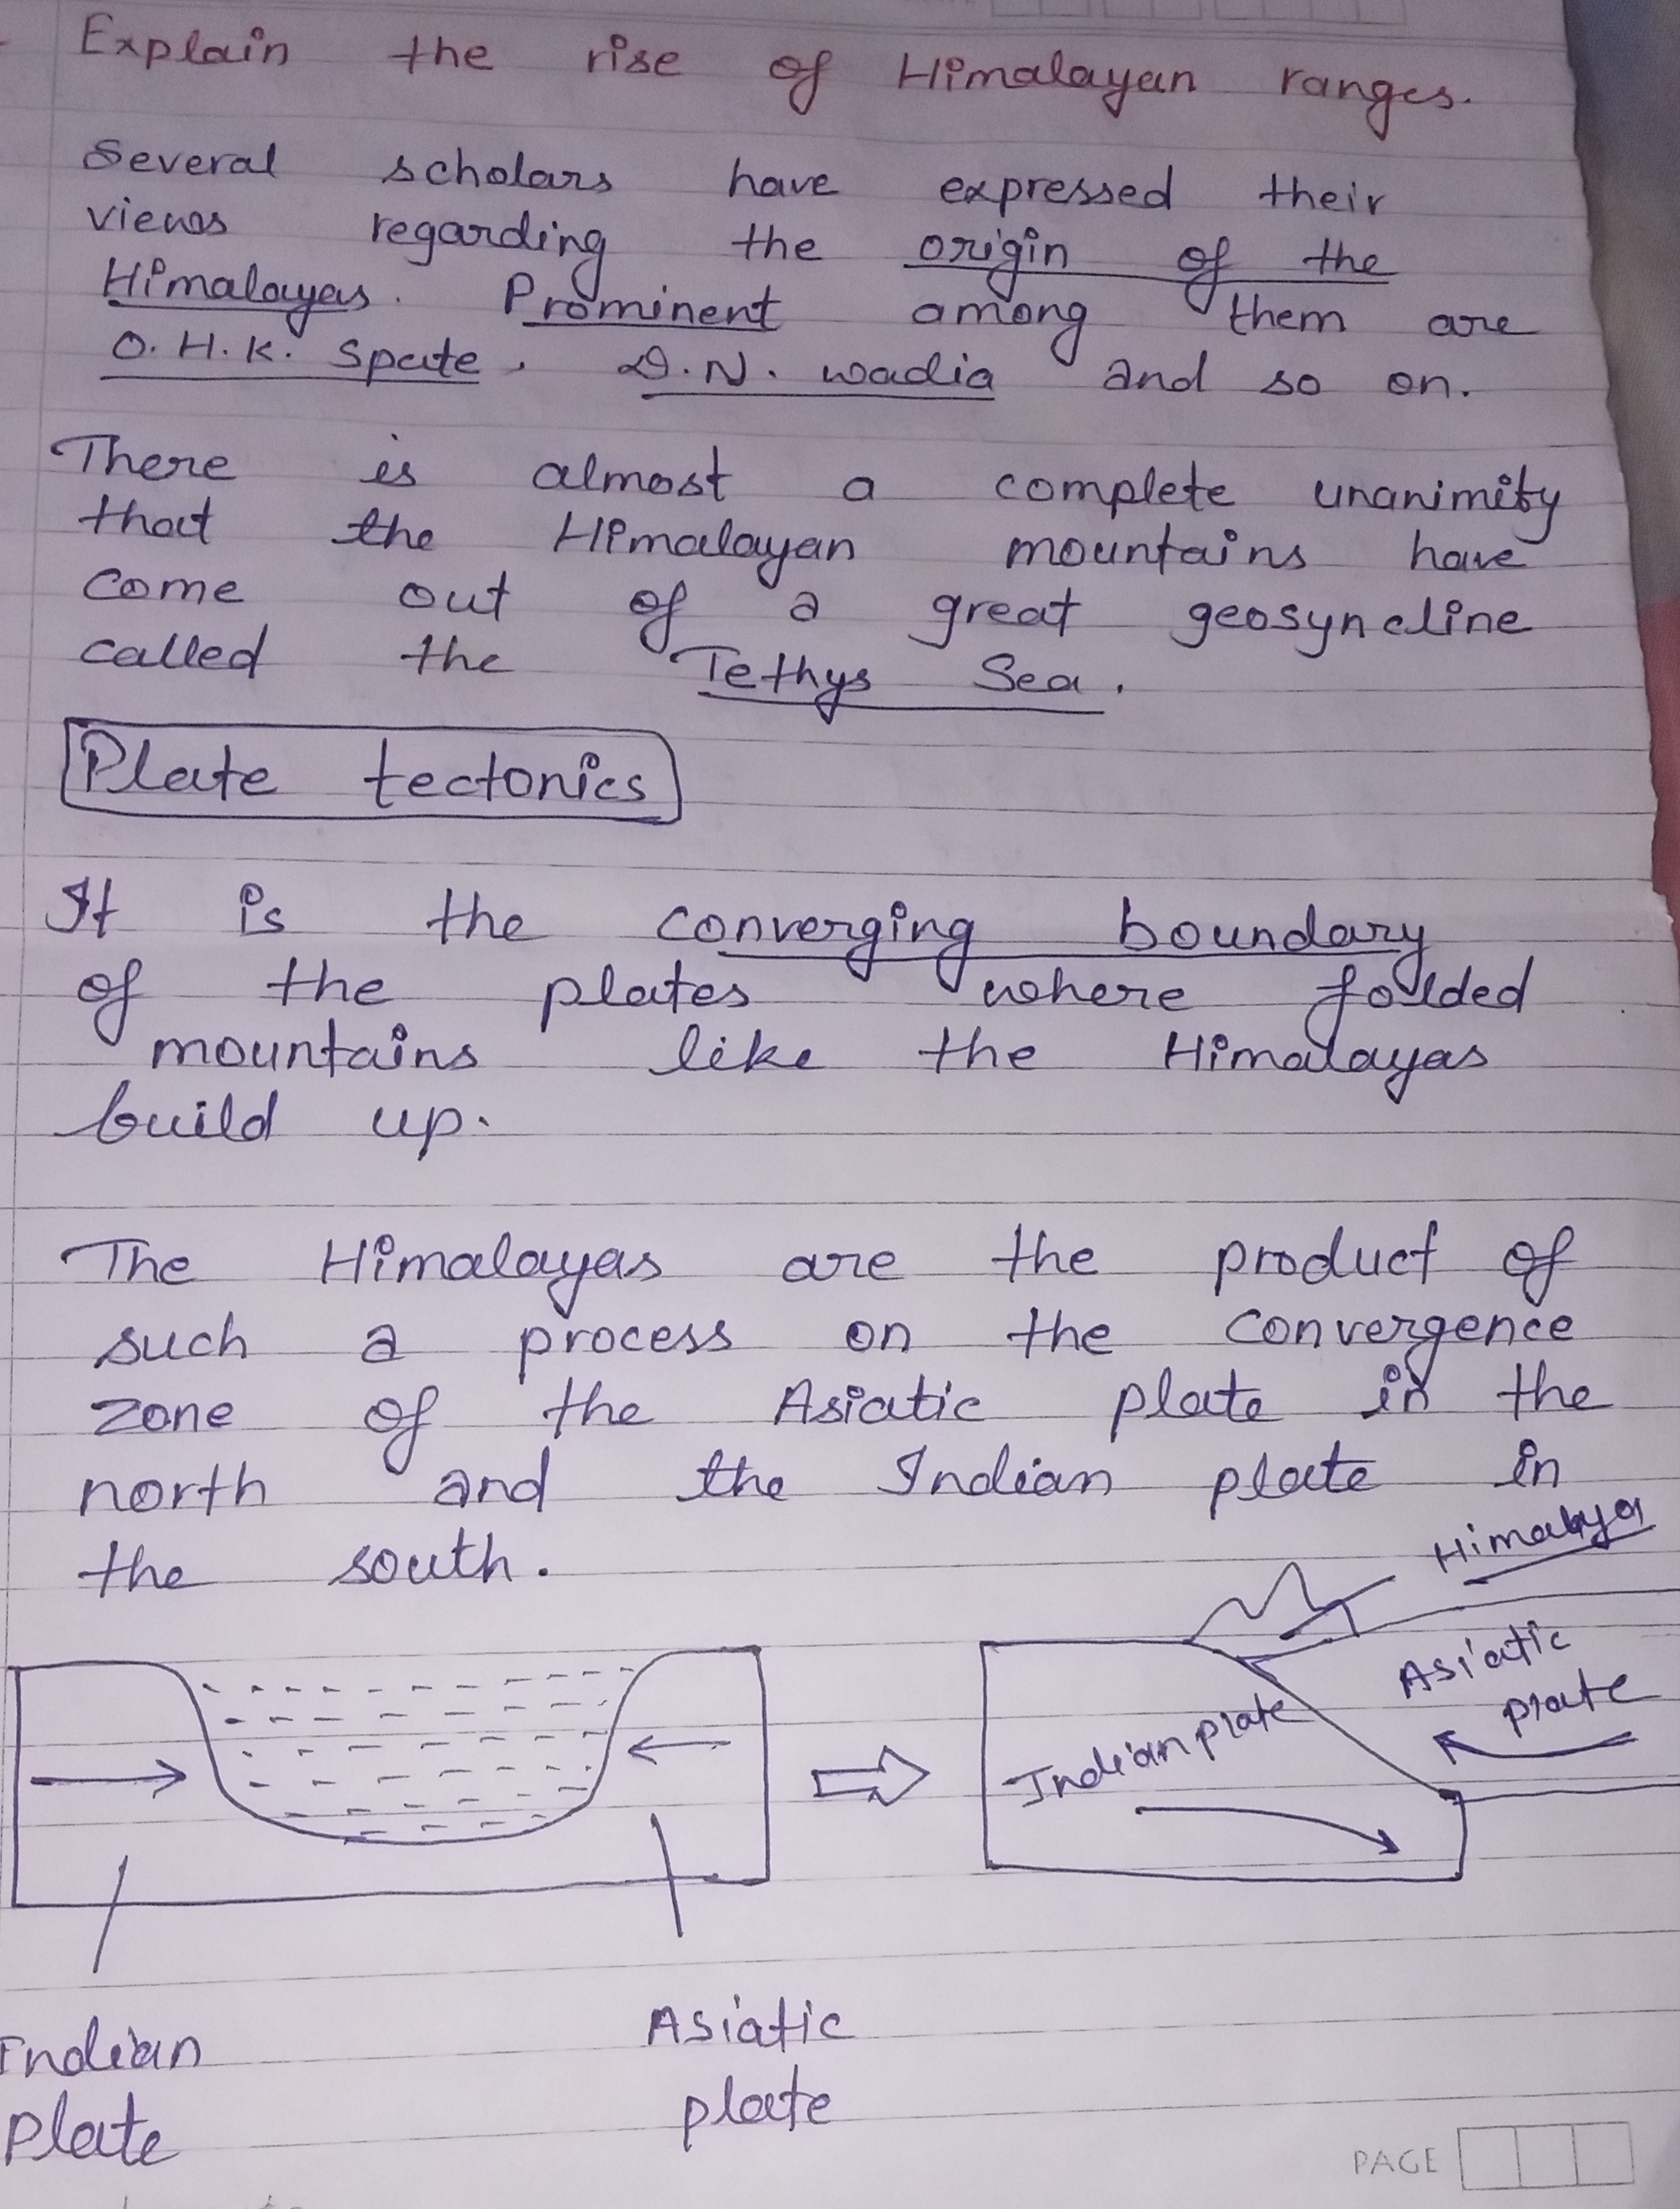 Explain the rise of Himalayan ranges.
Several scholars have expressed their
views regarding the origin of the
Himalayas. Prominent among them are
O.H.K. Spate, D.N. wadia and so on.
There is almost a complete unanimity
that the Himalayan mountains have
come out of a great geosyncline
called the Tethys Sea.
Plate tectonics
It is the converging boundary
of the plates where folded
mountains like the Himalayas
build up.
The Himalayas are the product of
such a process on the convergence
zone of the Asiatic plate in the
north and the Indian plate in
the south.
Himalya
Asiatic
plate
Indian plate
Indian
Plate
Asiatic
plate
PAGE